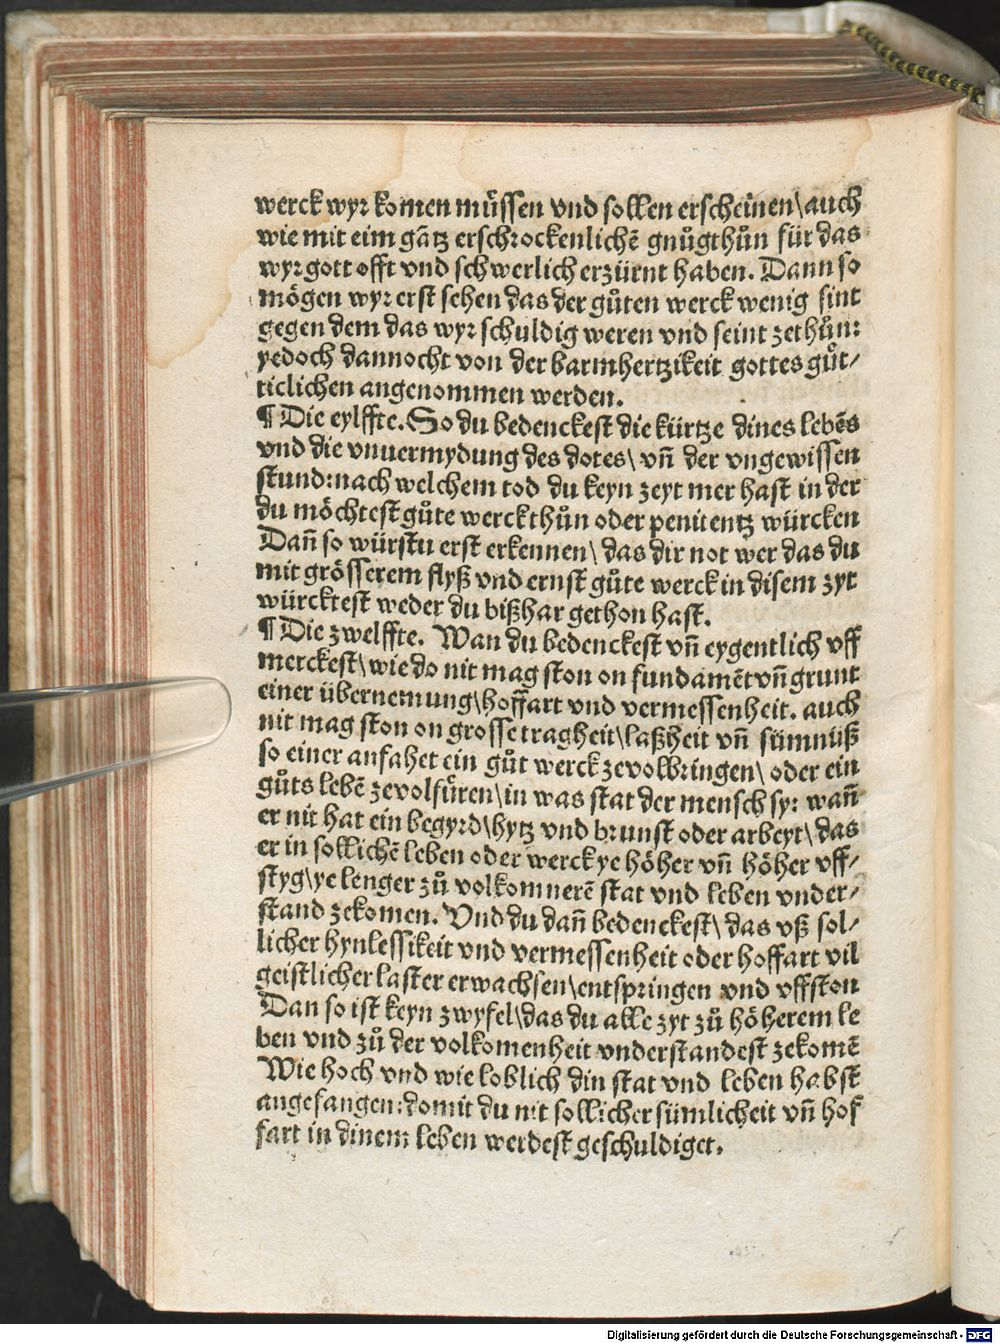 werck wyr komen müssen vnd sollen erscheinen\auch
wie mit eim gātz erschrockenlichē gnůgthůn für das
wyr gott offt vnd schwerlich erzürnt haben. Dann so
mögen wyr erst sehen das der gůten werck wenig sint
gegen dem das wyr schuldig weren vnd seint zethůn:
yedoch dannocht von der barmhertzikeit gottes gůt/
ticlichen angenommen werden.
¶ Die eylffte. So du bedenckest die kürtze dines lebēs
vnd die vnuermydung des dotes\ vn̄ der vngewissen
stund: nach welchem tod du keyn zeyt mer hast in der
du möchtest gůte werck thůn oder penitentz würcken
Dan̄ so würstu erst erkennen\ das dir not wer das du
mit grösserem flyß vnd ernst gůte werck in disem zyt
würcktest weder du bißhar gethon hast.
¶ Die zwelffte. Wan du bedenckest vn̄ eygentlich vff
merckest\ wie do nit mag ston on fundamēt vn̄ grunt
einer übernemung\hoffart vnd vermessenheit. auch
nit mag ston on grosse tragheit\laßheit vn̄ sümnüß
so einer anfahet ein gůt werck zevolbringen\ oder ein
gůts lebē zevolfüren\in was stat der mensch sy: wan̄
er nit hat ein begyrd\hytz vnd brunst oder arbeyt\ das
er in sollichē leben oder werck ye höher vn̄ höher vff/
styg\ye lenger zů volkomnerē stat vnd leben vnder/
stand zekomen. Vnd du dan̄ bedenckest\ das vß sol/
licher hynlessikeit vnd vermessenheit oder hoffart vil
geistlicher laster erwachsen\entspringen vnd vffston
Dan so ist keyn zwyfel\das du alle zyt zů höherem le
ben vnd zů der volkomenheit vnderstandest zekomē
Wie hoch vnd wie loblich din stat vnd leben habst
angefangen: domit du nit sollicher sümlicheit vn̄ hof
fart in dinem leben werdest geschuldiget.
Digitalisierung gefördert durch die Deutsche Forschungsgemeinschaft - DFG